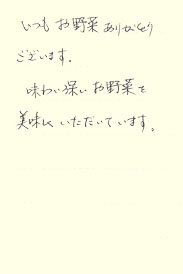 いつもお野菜ありがとう
ございます。
味わい深いお野菜を
美味しくいただいています。